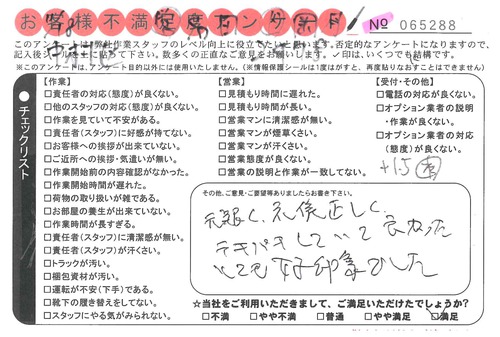 お客様不満足度アンケート
No 065288
このアンケートは弊社作業スタッフのレベル向上に役立てたいと思います。否定的なアンケートになりますので、
記入後シールを上に貼って下さい。数多くの正直なご意見をお願いします。✓印は、いくつでも結構です。
※このアンケートは、アンケート目的以外には使用いたしません。(※情報保護シールは1度はがすと、再度貼りなおすことはできません)
チェックリスト
【作業】
□責任者の対応(態度)が良くない。
□他のスタッフの対応(態度)が良くない。
□作業を見ていて不安がある。
□責任者(スタッフ)に好感が持てない。
□お客様への挨拶が出来ていない。
□ご近所への挨拶・気遣いが無い。
□作業開始前の内容確認がなかった。
□作業開始時間が遅れた。
□荷物の取り扱いが雑である。
□お部屋の養生が出来ていない。
□作業時間が長すぎる。
□責任者(スタッフ)に清潔感が無い。
□責任者(スタッフ)が汗くさい。
□トラックが汚い。
□梱包資材が汚い。
□運転が不安(下手)である。
□靴下の履き替えをしてない。
□スタッフにやる気がみられない。
【営業】
□見積もり時間に遅れた。
□見積もり時間が長い。
□営業マンに清潔感が無い。
□営業マンが煙草くさい。
□営業マンが汗くさい。
□営業態度が良くない。
□営業の説明と作業が一致してない。
【受付・その他】
□電話の対応が良くない。
□オプション業者の説明
・作業が良くない。
□オプション業者の対応
(態度)が良くない。
+15
その他、ご意見・ご要望等ありましたらお書き下さい。
元気良く、礼儀正しく
テキパキしていて良かった
とても好印象でした
☆当社をご利用いただきまして、ご満足いただけたでしょうか?
□不満 □やや不満 □普通 □やや満足 ☑満足